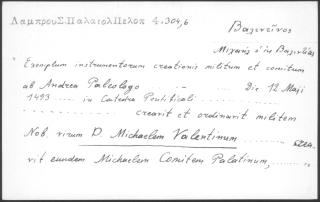 Λαμπρου Σ. Παλαιολ Πελοπ 4.304,6
Βαλεντῖνος
Μιχαὴλ ὁ ἐκ Βαλεντίας
"Exemplum instrumentorum creationis militum et comitum
ab Andrea Paleologo — Die 12 Maji
1493 — in Catedra Pontificali
creavit et ordinavit militem
Nob. virum D. Michaelem Valentinum crea-
vit eundem Michaelem Comitem Palatinum,